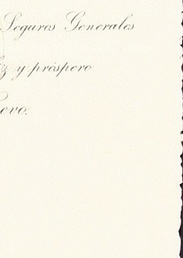 Seguros Generales
y próspero